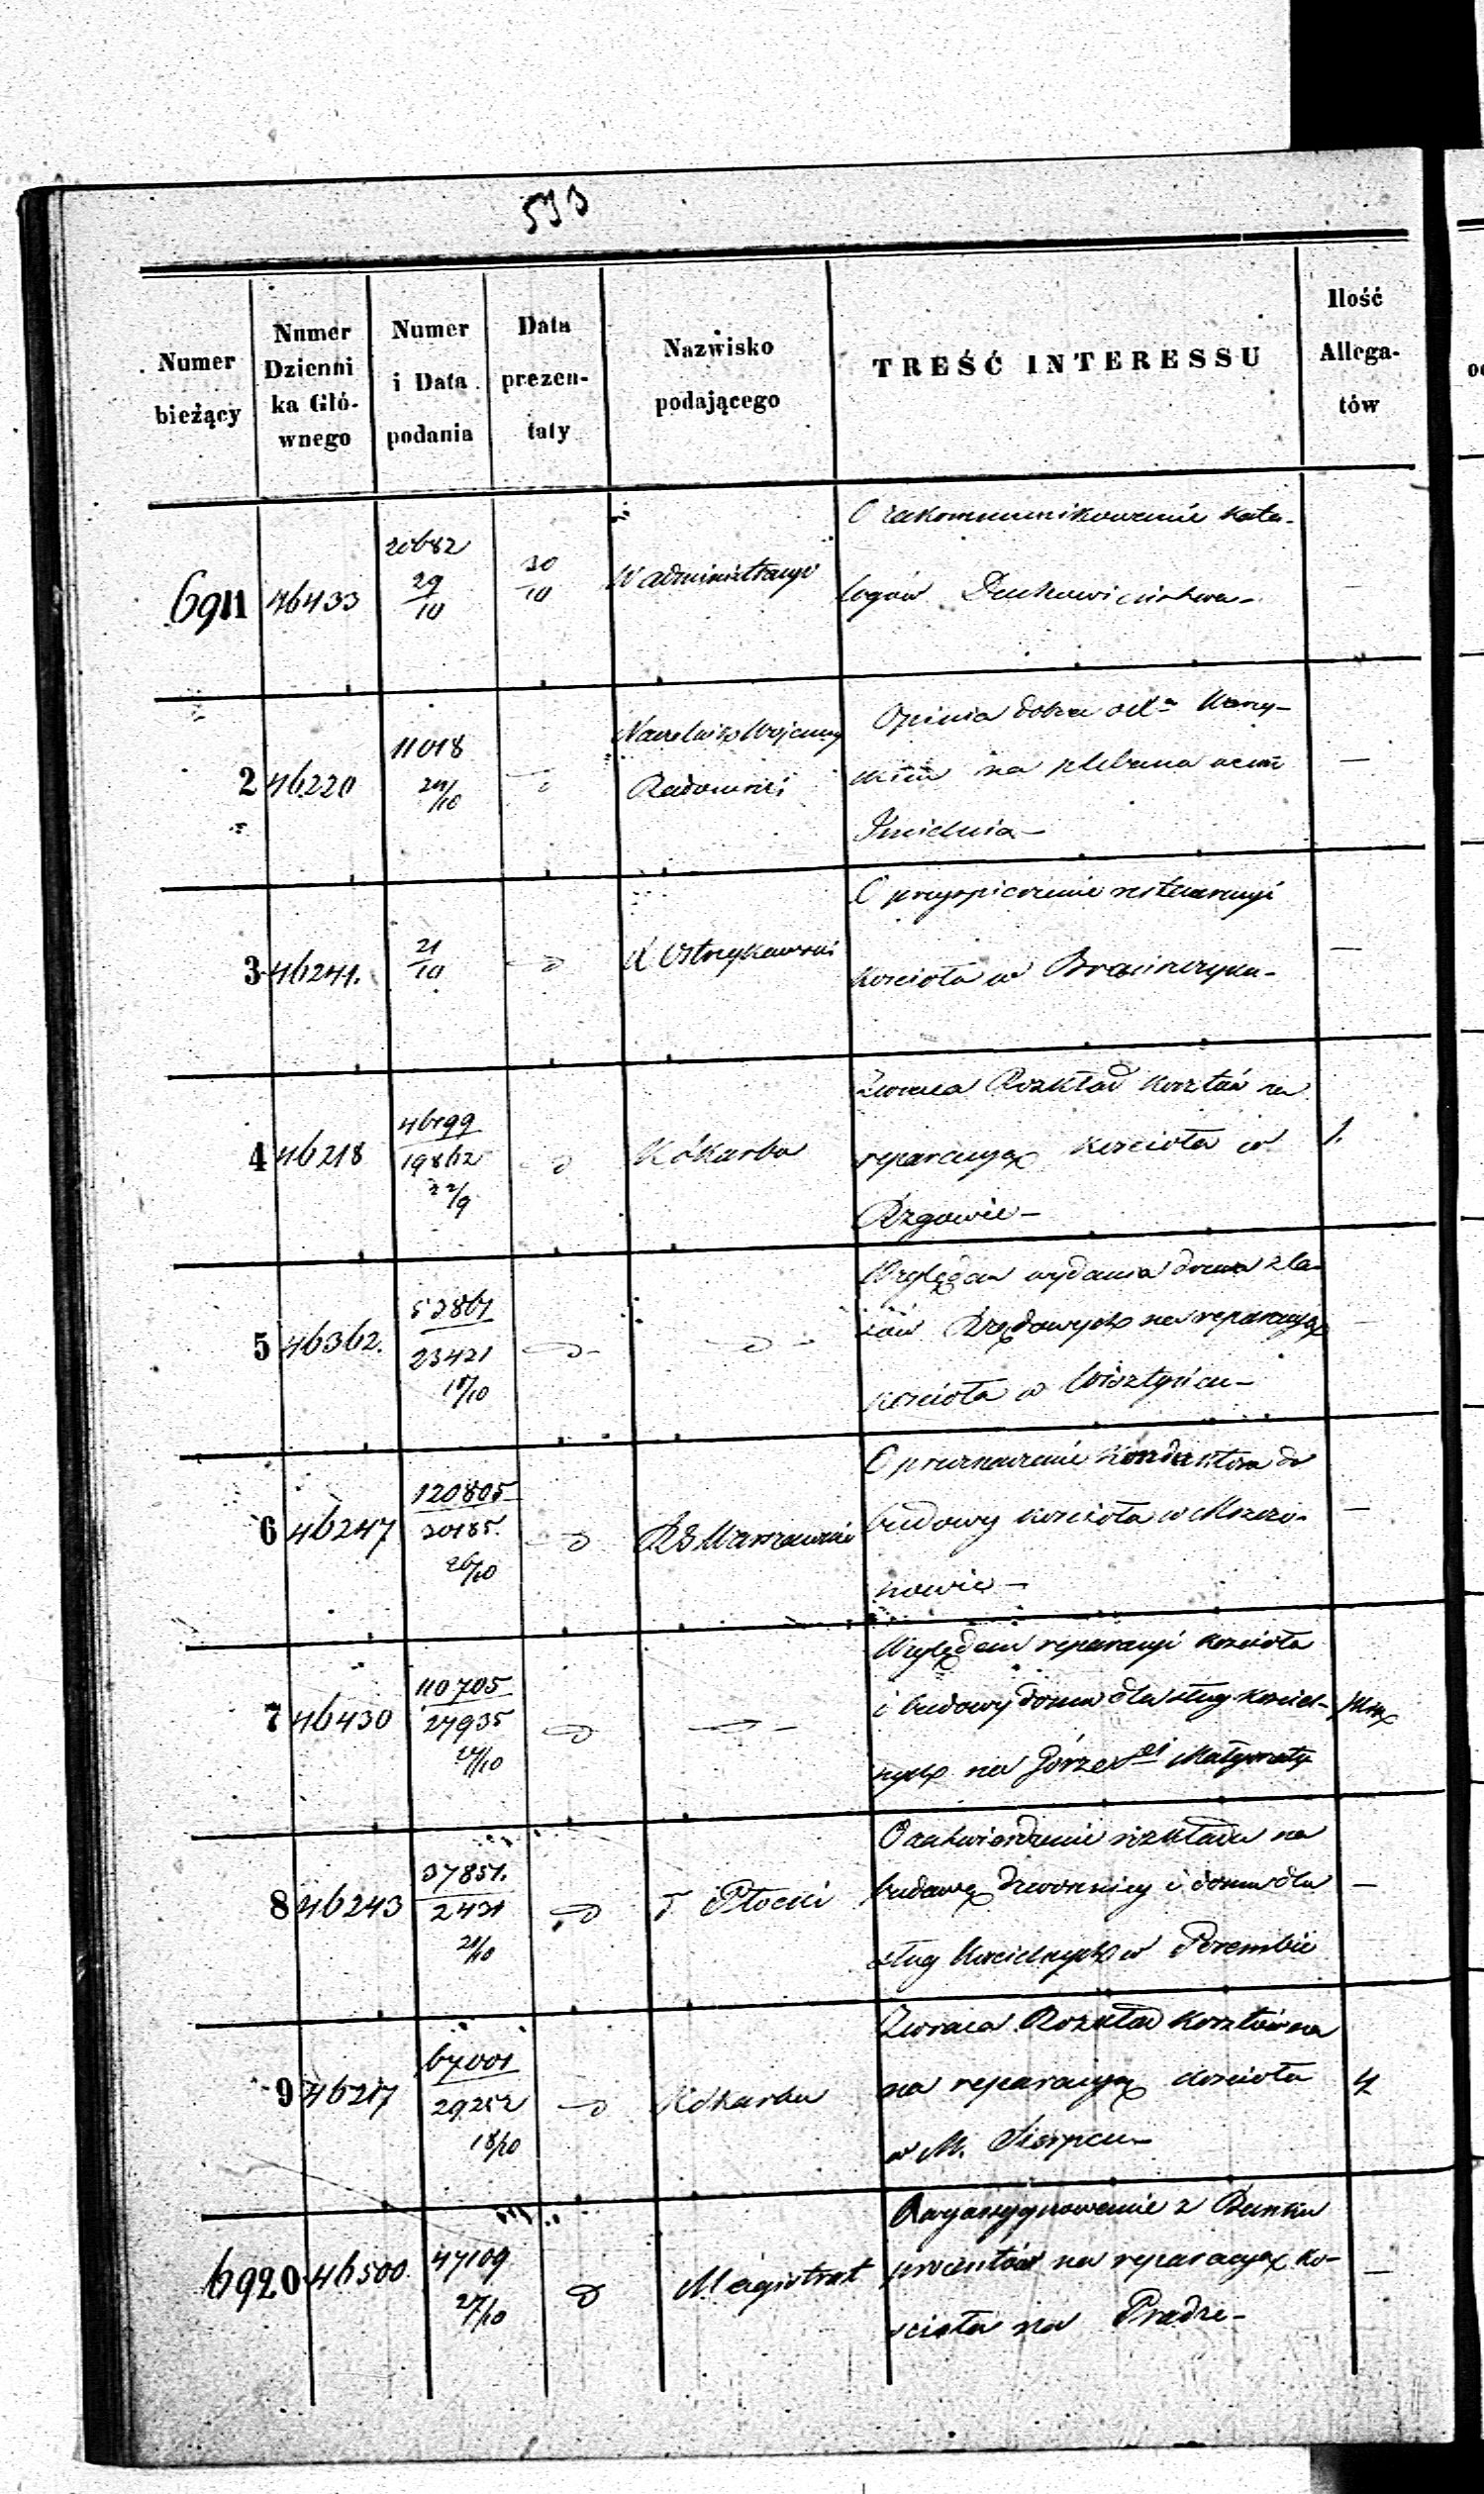 593
Numer bieżący
Numer Dzienni ka Głó- wnego
Numer i Data podania
Data prezen- taty
Nazwisko podającego
TREŚĆ INTERESSU
Ilość Allega- tów
6911 46433 20682 29/10 30/10 W administracyi
O zakommunikowanie kata-
logów Duchowieństwa –
2 46220 11018 24/10 Naczelnik Wojenny
Radomski
Opinia dobra o
na plebana
Imielnia –
3 46241. 21/10 X Ostrykowski
O przyspieszenie restauracyi
kościoła w
4 46218 46199 19862 22/9 K Skarbu
Zwraca Rozkład kosztów na
reparacyą kościoła w 1.
Rzgowie –
5 46362. 53861 23421 18/10
Względem wydania drzewa z la-
sów Rządowych na reparacyą –
kościoła w Wisztyńcu –
6 46247 120805 30185. 26/10 RG Warszawski
O przeznaczenie konduktora do
budowy kościoła w Mszczo- –
nowie –
7 46430 110705 27935 24/10
Względem reparacyi kościoła
i budowy domu dla sług kościel-
nych na Górze Małgorzaty
8 46243 37851. 2431 21/10 T Płocki
O zatwierdzenie rozkładu na
budowę dzwonnicy i domu dla –
sług kościelnych w Porembie
9 46217 67001 29252 18/10 K Skarbu
Zwraca Rozkład kosztów na
na reparacyą kościoła 4
w M. Sierpcu –
6920 46500 47109 27/10 Magistrat
Rozasygnowanie z Banku
procentów na reparacyą ko- –
ścioła na Pradze –